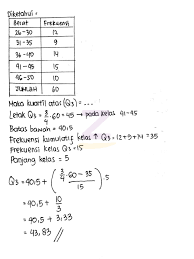 Diketahui:
Berat Frekuensi
26-30 12
31-35 9
36-40 14
41-45 15
46-50 10
JUMLAH 60
Maka kuartil atas (Q3) = ....
Letak Q3 = 3/4 . 60 = 45 → pada kelas 41-45
Batas bawah = 40,5
Frekuensi kumulatif kelas ↑ Q3 = 12+9+14 = 35
Frekuensi kelas Q3 = 15
Panjang kelas = 5
Q3 = 40,5 + ( (3/4 . 60 - 35) / 15 ) . 5
= 40,5 + 10/3
= 40,5 + 3,33
= 43,83 //